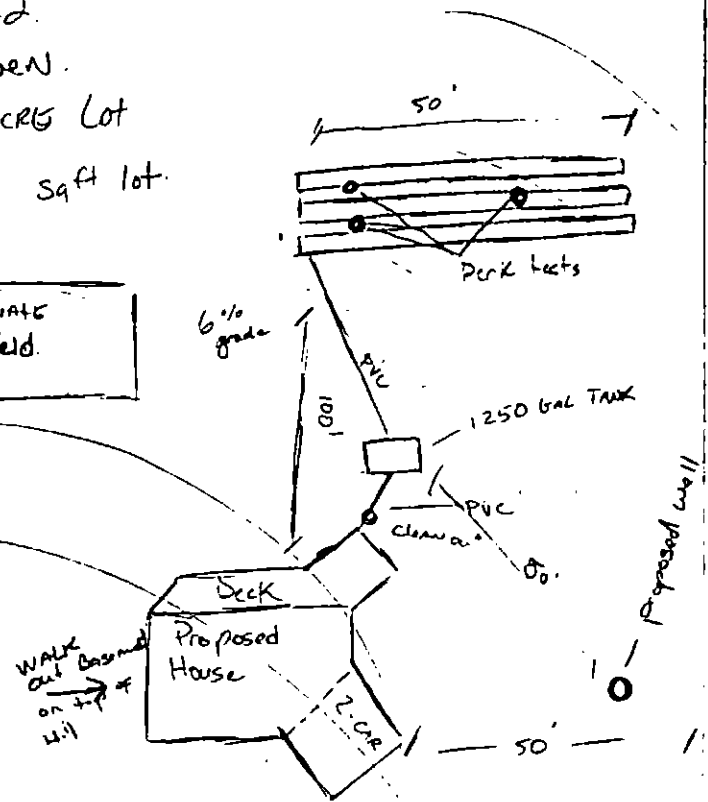 d.
en.
CRE Lot
sqft lot.
50'
Perk tests
ATE
eld.
6%
grade
PVC
100'
1250 GAL TANK
PVC
cleanou
Proposed well
Deck
Proposed
House
WALK
out Basement
on top of
Hill
2-CAR
50'